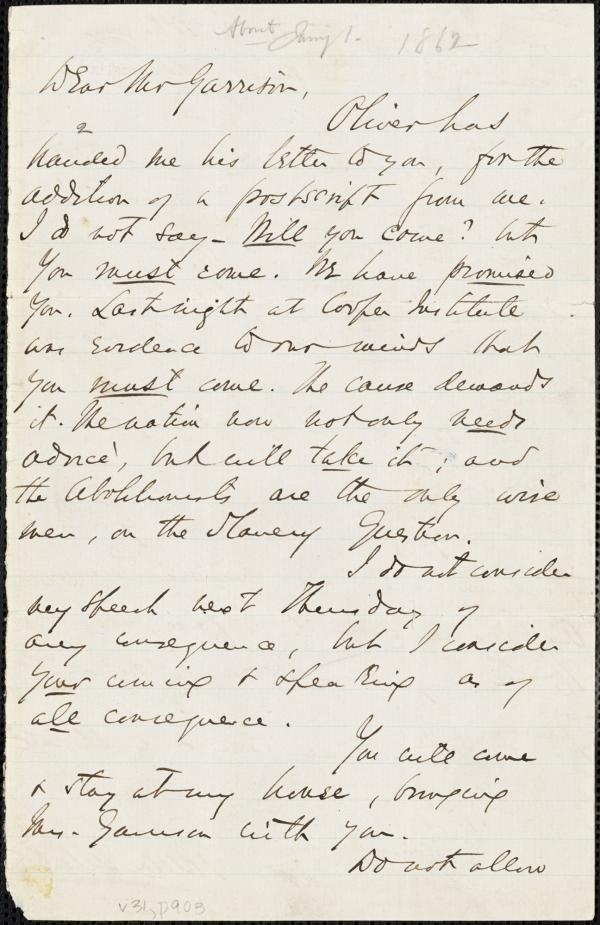 About Jany 1. 1862
Dear Mr Garrison,
Oliver has
handed me his letter to you, for the
addition of a postscript from me.
I do not say - Will you come? but
You must come. We have promised
You. Last night at Cooper Institute
was evidence to our minds that
you must come. The cause demands
it. The nation now not only needs
advice, but will take it; and
the Abolitionists are the only wise
men, on the Slavery Question.
I do not consider
my speech next Thursday of
any consequence, but I consider
your coming & speaking as of
all consequence.
You will come
& stay at my house, bringing
Mrs. Garrison with you.
Do not allow
v31, p90B